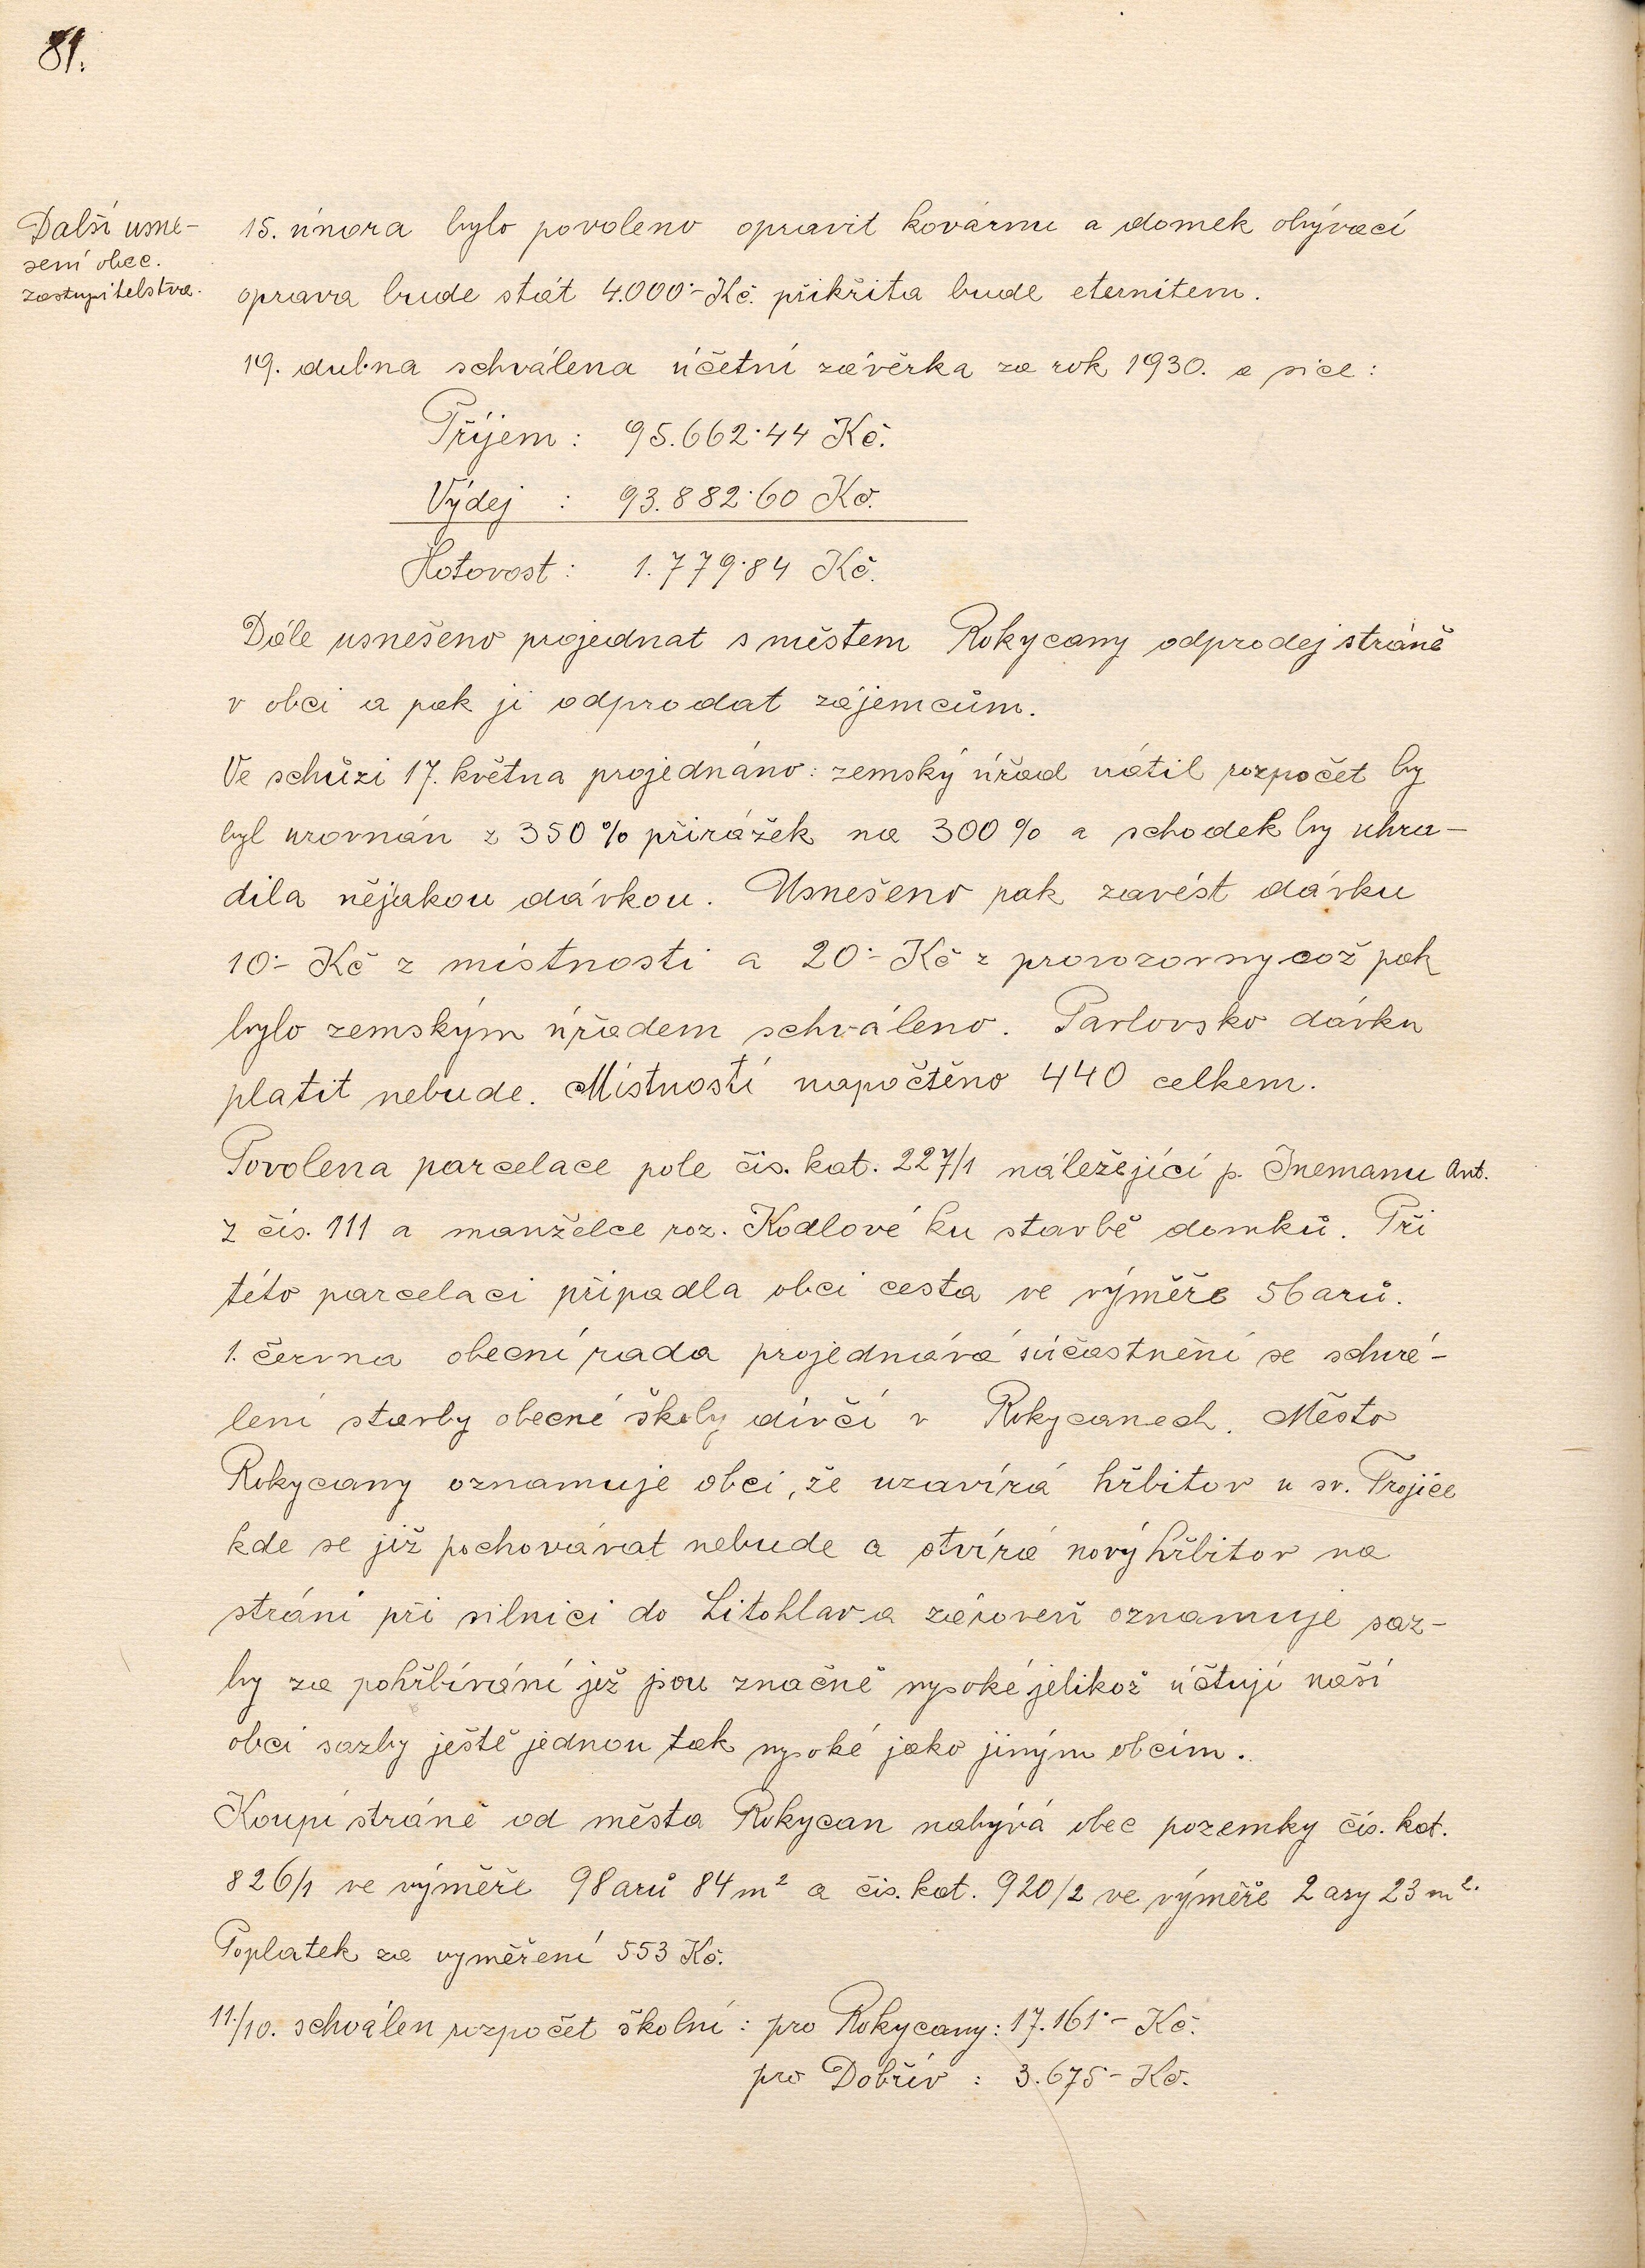 81.
Další usne-
sení obec.
zastupitelstva.
15. února bylo povoleno opravit kovárnu a domek obývací
oprava bude stát 4.000·- Kč. přikřita bude eternitem.
19. dubna schválena účetní závěrka za rok 1930. a sice :
Příjem : 95.662·44 Kč.
Výdej : 93.882·60 Kč.
Hotovost : 1.779·84 Kč.
Dále usnešeno projednat s městem Rokycany odprodej stráně
v obci a pak ji odprodat zájemcům.
Ve schůzi 17. května projednáno : zemský úřad vrátil rozpočet by
byl urovnán z 350 % přirážek na 300 % a schodek by uhra-
dila nějakou dávkou. Usnešeno pak zavést dávku
10·- Kč z místnosti a 20·- Kč z provozovny což pak
bylo zemským úřadem schváleno. Pavlovsko dávku
platit nebude. Místností napočtěno 440 celkem.
Povolena parcelace pole čís. kat. 227/1 náležející p. Inemanu Ant.
z čís. 111 a manželce roz. Kodlové ku stavbě domků. Při
této parcelaci připadla obci cesta ve výměře 56 arů.
1. června obecní rada projednává súčastnění se schvá-
lení stavby obecné školy dívčí v Rokycanech. Město
Rokycany oznamuje obci, že uzavírá hřbitov u sv. Trojice
kde se již pochovávat nebude a otvírá nový hřbitov na
stráni při silnici do Litohlav a zároveň oznamuje saz-
by za pohřbívání jež jsou značně vysoké jelikož účtují naší
obci sazby ještě jednou tak vysoké jako jiným obcím.
Koupí stráně od města Rokycan nabývá obec pozemky čís. kat.
826/1 ve výměře 98 arů 84 m² a čís. kat. 920/2 ve výměře 2 ary 23 m².
Poplatek za vyměření 553 Kč.
11./10. schválen rozpočet školní : pro Rokycany : 17.161·- Kč.
pro Dobřív : 3.675·- Kč.